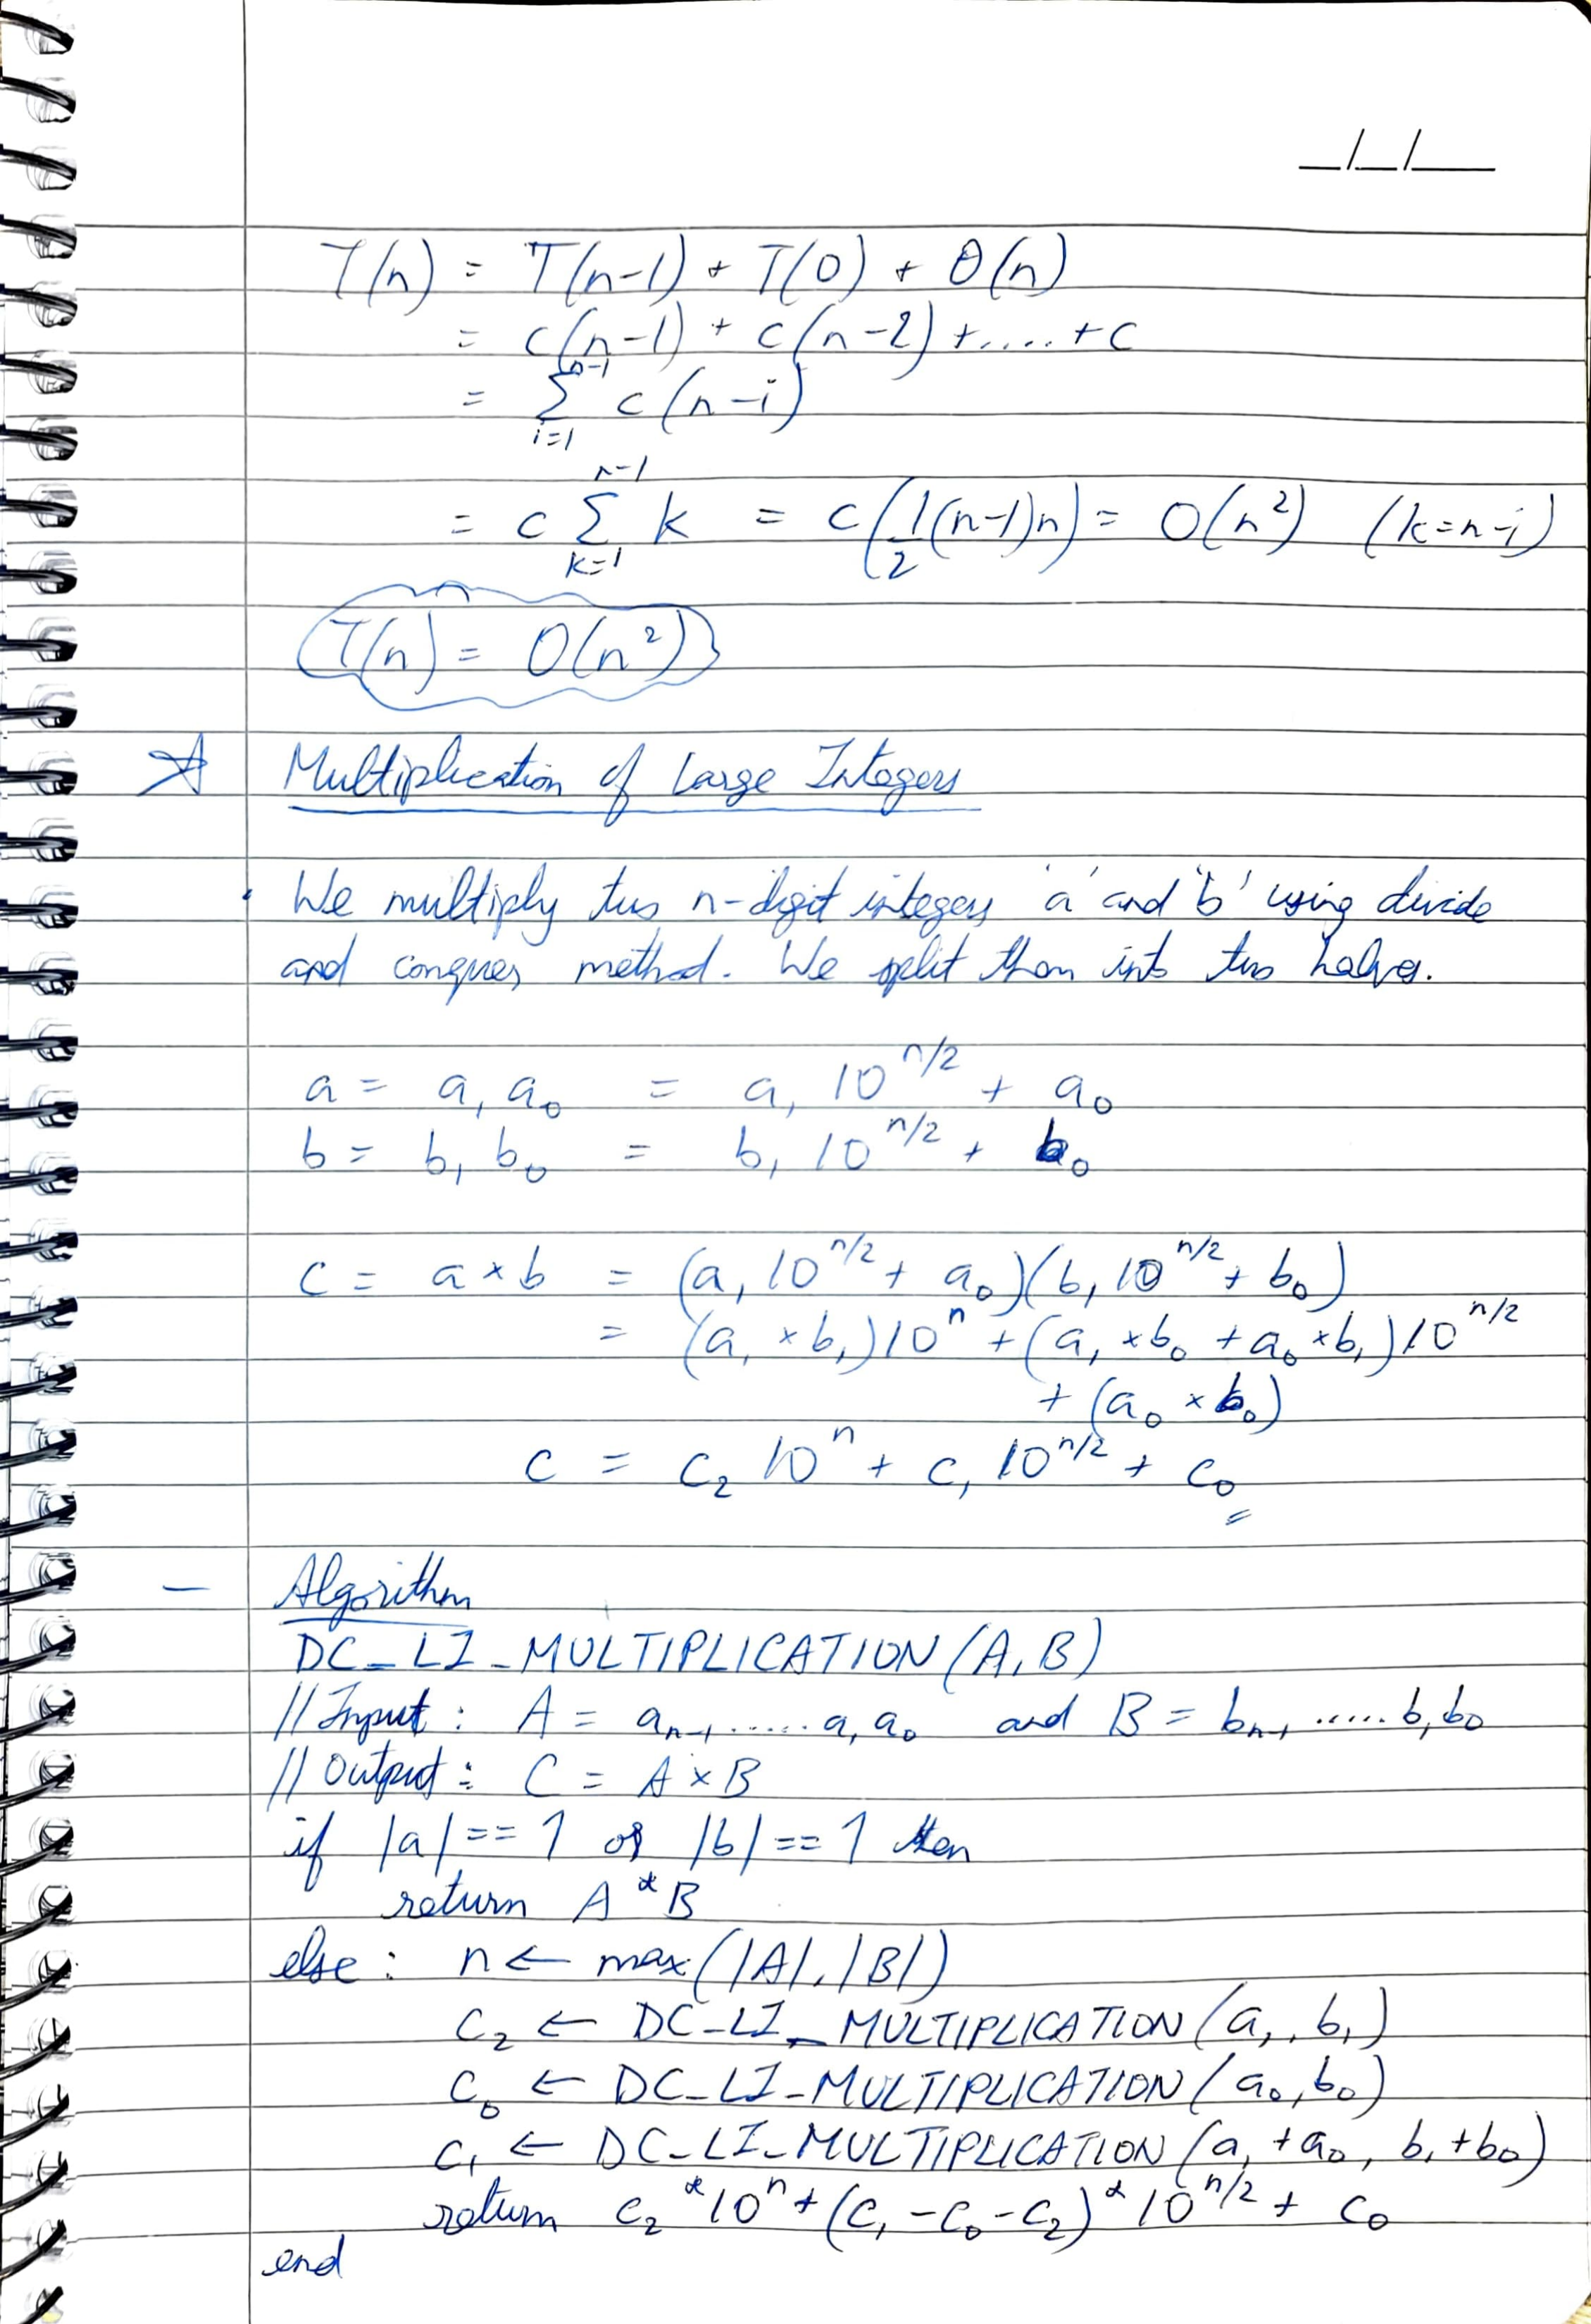 _/_/__
T(n) = T(n-1) + T(0) + θ(n)
= c(n-1) + c(n-2) + ..... + c
= Σ_{i=1}^{n-1} c(n-i)
= c Σ_{k=1}^{n-1} k = c(1/2(n-1)n) = O(n²) (k=n-i)
T(n) = O(n²)
☆ Multiplication of Large Integers
• We multiply two n-digit integers 'a' and 'b' using divide
and conquer method. We split them into two halves.
a = a₁ a₀ = a₁ 10^{n/2} + a₀
b = b₁ b₀ = b₁ 10^{n/2} + b₀
c = a × b = (a₁ 10^{n/2} + a₀)(b₁ 10^{n/2} + b₀)
= (a₁ × b₁)10^n + (a₁ × b₀ + a₀ × b₁)10^{n/2}
+ (a₀ × b₀)
c = c₂ 10^n + c₁ 10^{n/2} + c₀
– Algorithm
DC_LI_MULTIPLICATION(A,B)
// Input : A = a_{n-1} ..... a₁ a₀ and B = b_{n-1} ..... b₁ b₀
// Output : C = A × B
if |a| == 1 or |b| == 1 then
return A * B
else : n ← max(|A|, |B|)
c₂ ← DC_LI_MULTIPLICATION(a₁, b₁)
c₀ ← DC_LI_MULTIPLICATION(a₀, b₀)
c₁ ← DC_LI_MULTIPLICATION(a₁ + a₀, b₁ + b₀)
return c₂ * 10^n + (c₁ - c₀ - c₂) * 10^{n/2} + c₀
end